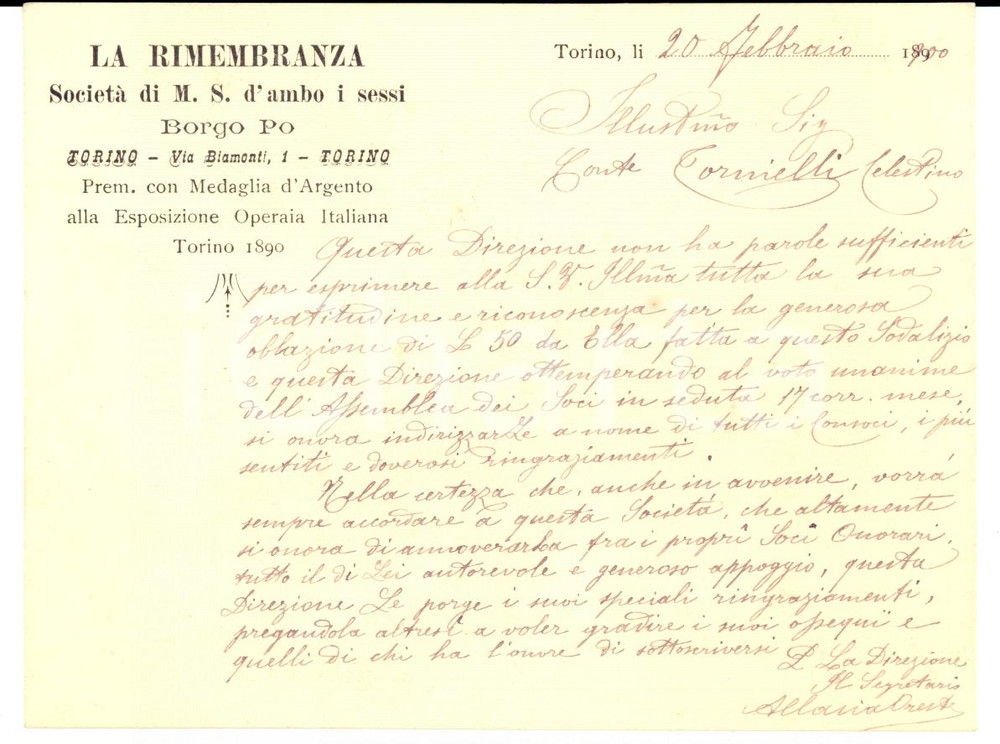 LA RIMEMBRANZA
Società di M. S. d'ambo i sessi
Borgo Po
TORINO – Via Biamonti, 1 – TORINO
Prem. con Medaglia d'Argento
alla Esposizione Operaia Italiana
Torino 1890
Torino, li 20 Febbraio 1900
Illustrño Sig
Conte Tornielli Celestino
Questa Direzione non ha parole sufficienti
per esprimere alla S. V. Illm̃a tutta la sua
gratitudine e riconoscenza per la generosa
oblazione di L 50 da Ella fatta a questo Sodalizio
e questa Direzione ottemperando al voto unanime
dell'Assemblea dei Soci in seduta 17 corr. mese,
si onora indirizzarLe a nome di tutti i Consoci, i più
sentiti e doverosi ringraziamenti.
Nella certezza che, anche in avvenire, vorrá
sempre accordare a questa Societá, che altamente
si onora di annoverarLa fra i proprî Socî Onorari,
tutto il di Lei autorevole e generoso appoggio, questa
Direzione Le porge i suoi speciali ringraziamenti,
pregandola altresì a voler gradire i suoi ossequi e
quelli di chi ha l'onore di sottoscriversi
P. La Direzione
Il Segretario
Oreste